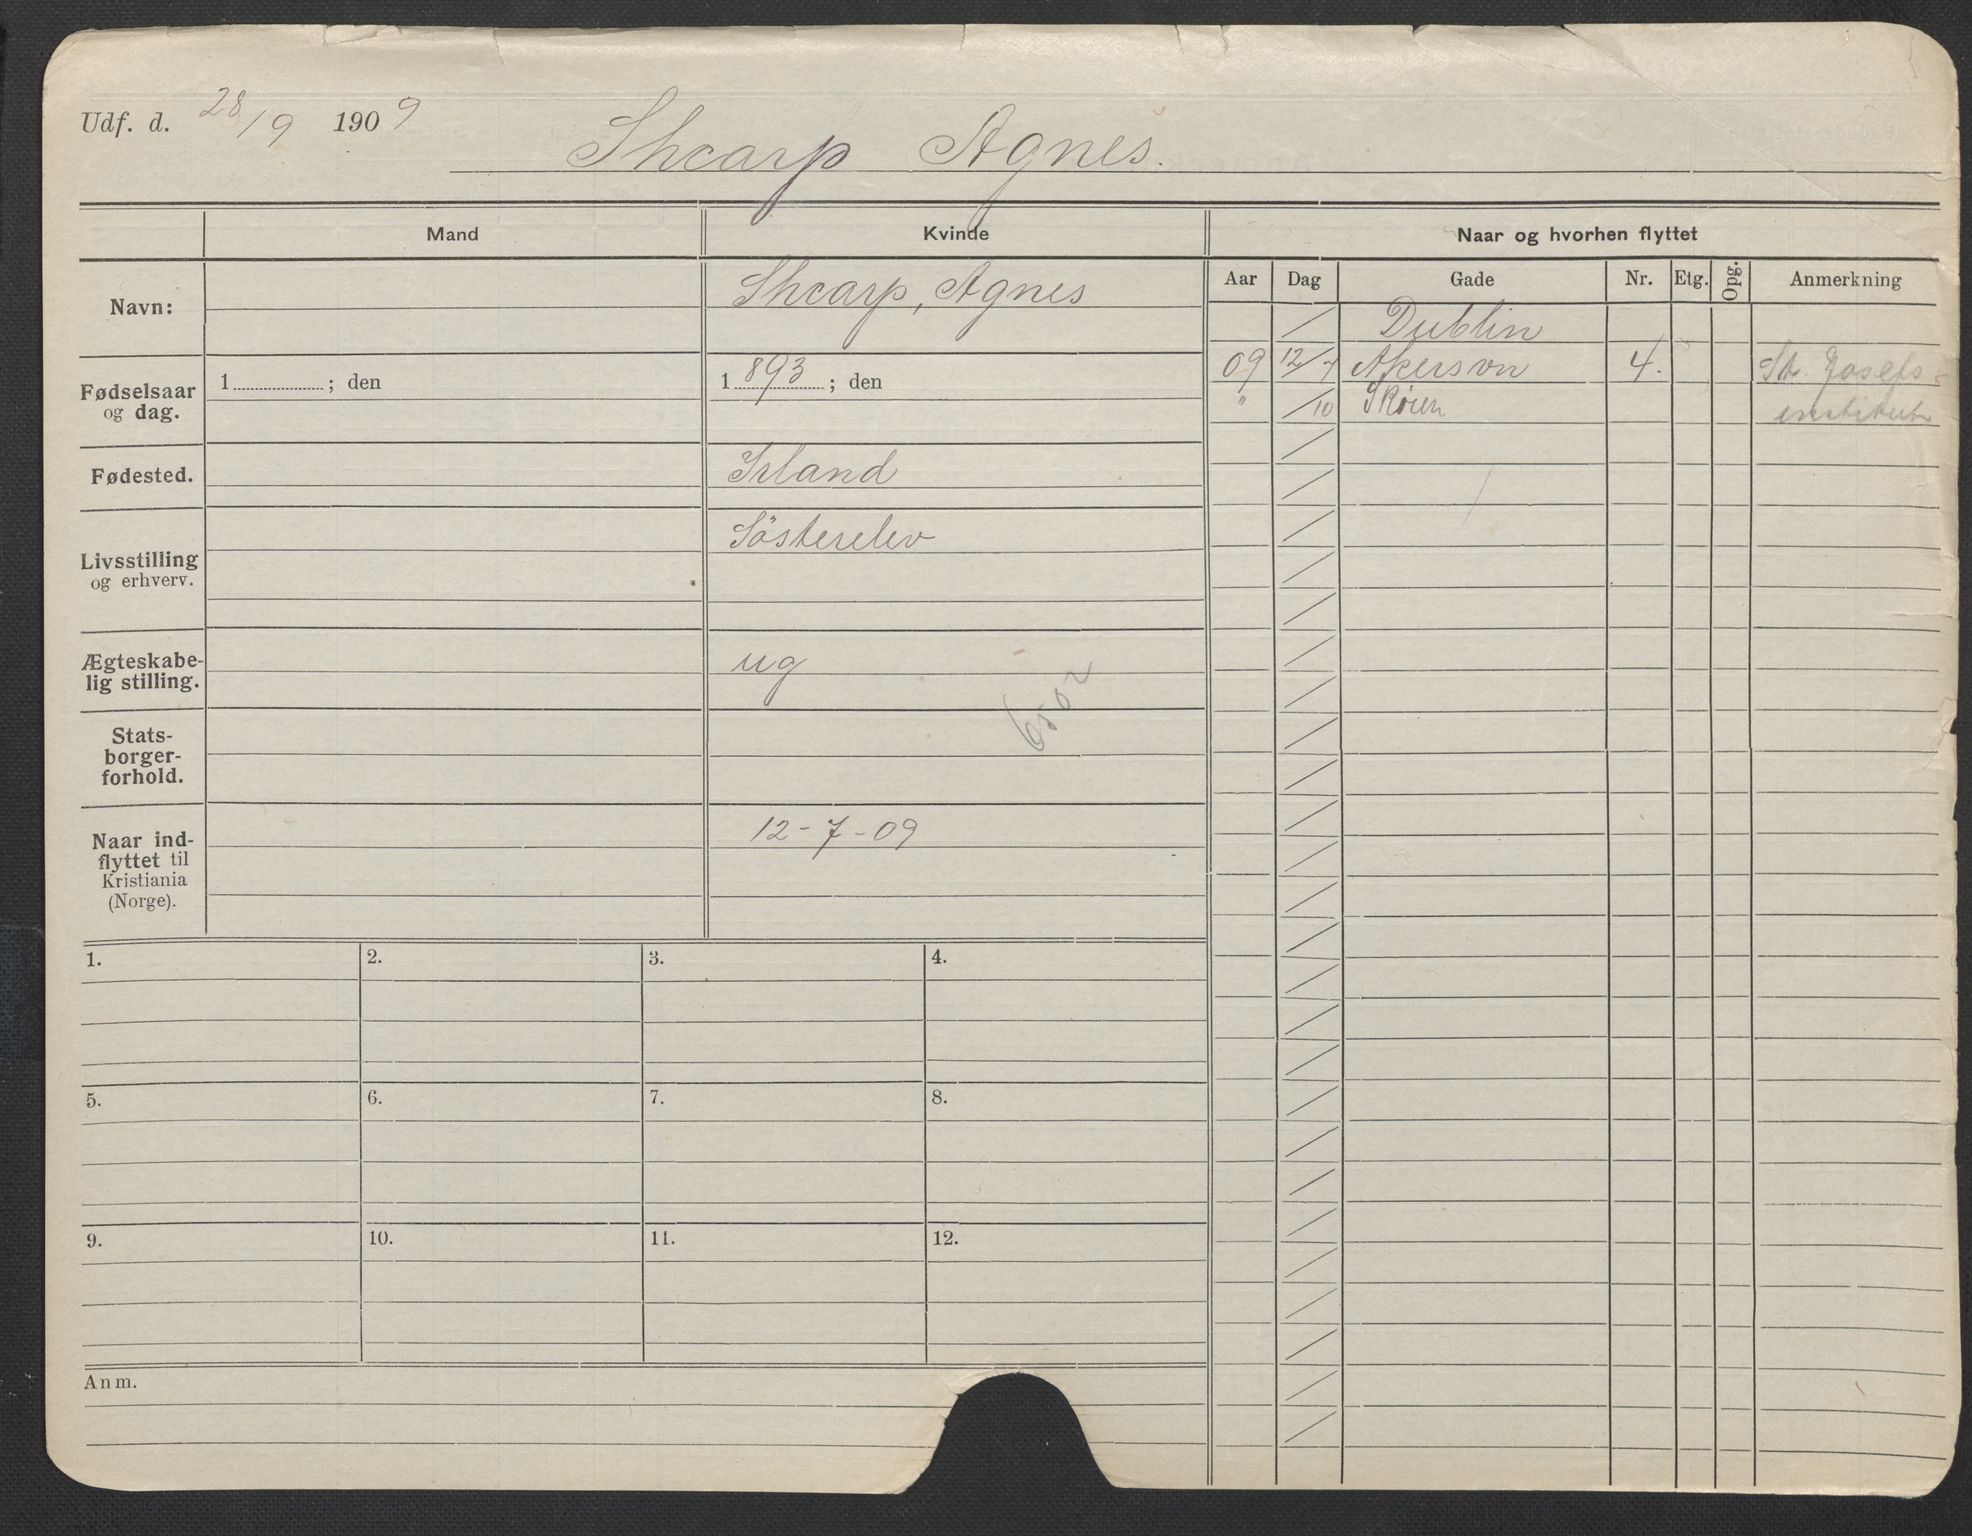 Udf. d. 28/9 1909
Shcarp Agnes.
Mand Kvinde Naar og hvorhen flyttet
Navn: Shcarp, Agnes
Aar Dag Gade Nr. Etg. Opg. Anmerkning
/ Dublin
09 12/7 Akersvn 4. St. Josefs
" /10 Skøien institut
Fødselsaar
og dag.
1 ; den 1893 ; den
Fødested. Irland
Livsstilling
og erhverv.
Sösterelev
Ægteskabe-
lig stilling.
ug
6502
Stats-
borger-
forhold.
Naar ind-
flyttet til
Kristiania
(Norge).
12-7-09
1. 2. 3. 4.
5. 6. 7. 8.
9. 10. 11. 12.
Anm.